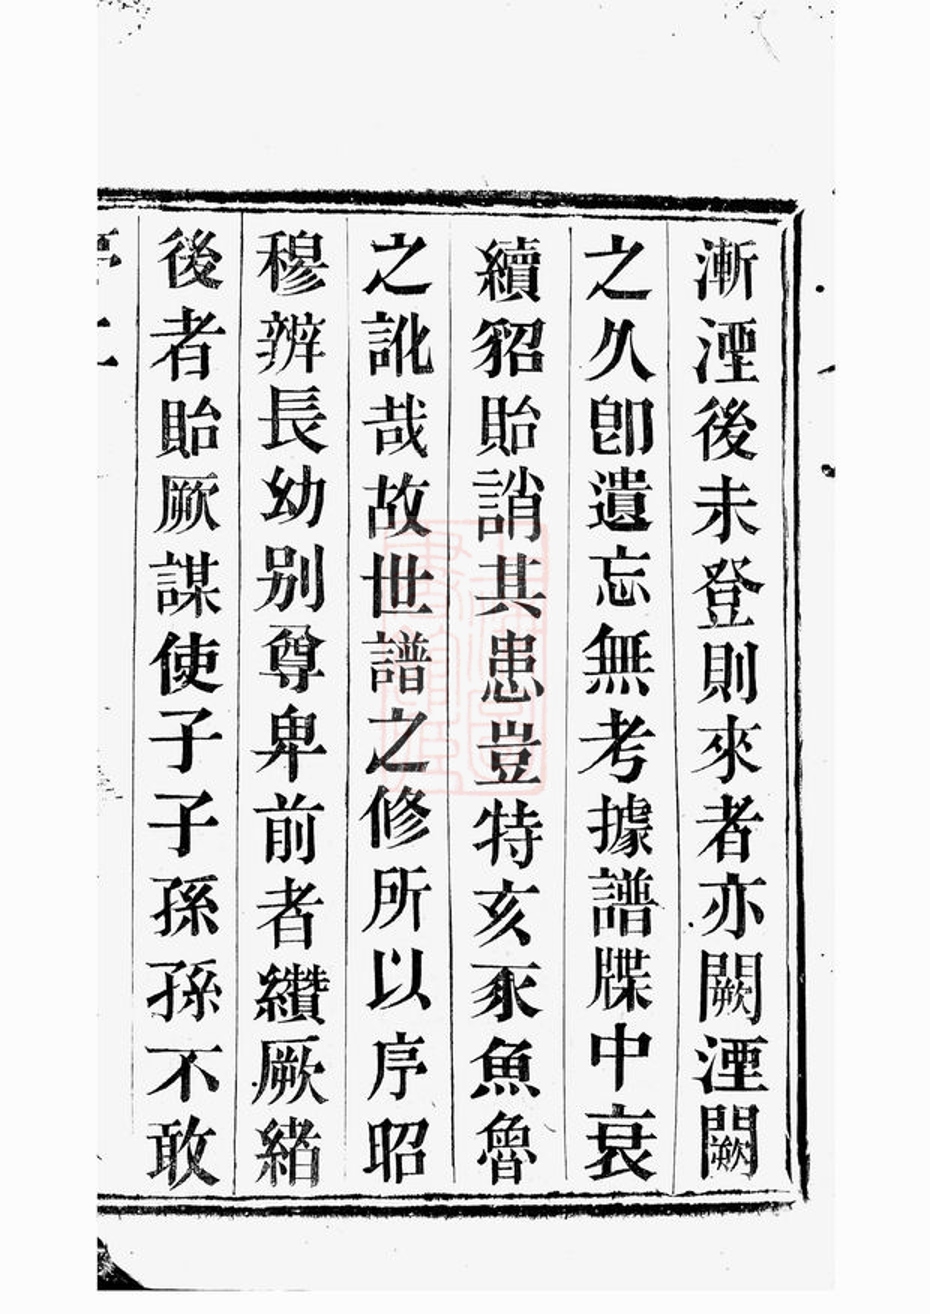 漸湮後未登則來者亦闕湮闕
之久卽遺忘無考據譜牒中衰
續貂貽誚其患豈特亥豕魚魯
之訛哉故世譜之修所以序昭
穆辨長幼別尊卑前者纘厥緒
後者貽厥謀使子子孫孫不敢